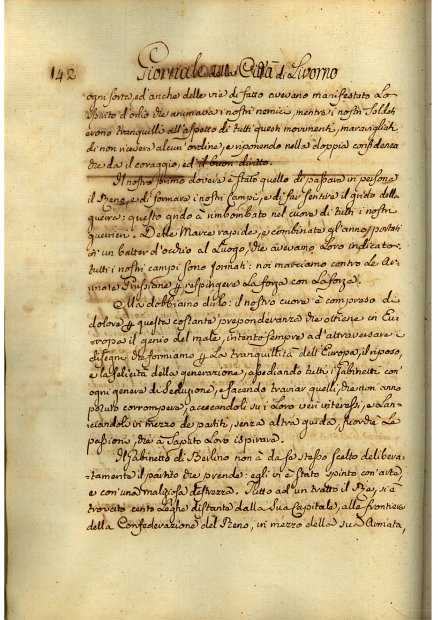 142 Giornale della Città di Livorno
ogni sorta, ed anche delle vie di fatto avevano manifestato Lo
Spirito d'odio che animava i nostri nemici, mentre i nostri Soldati
erono tranquilli all'aspetto di tutti questi movimenti, maravigliati
di non ricevere alcun'ordine, e riponendo nella doppia confidenza
che da il coraggio, ed il buon diritto.
Il nostro primo dovere è stato quello di passare in persona
il Reno, e di formare i nostri Campi, e di far sentire il grido della
guerra: questo grido à rimbombato nel cuore di tutti i nostri
guerrieri. Delle Marce rapide, e combinate gl'anno portati
in un batter d'occhio al Luogo, che avevamo Loro indicato.
tutti i nostri campi sono formati: noi marciamo contro Le Ar=
mate Prussiane p respingere La forza con La forza.
Ma dobbiamo dirlo: il nostro cuore è compreso di
dolore p questa costante preponderanza che ottiene in Eu=
ropa il genio del male, intento sempre ad attraversare i
disegni che formiamo p La tranquillità dell'Europa, il riposo,
e la felicità della generazione, assediando tutti i Gabinetti con
ogni genere di Seduzione, e facendo traviar quelli, che non anno
potuto corrompere, accecandoli su i Loro veri interessi, e Lan=
ciandoli in mezzo de partiti, senza altra guida fuorchè Le
passioni, che à saputo Loro ispirare.
Il Gabinetto di Berlino non à da se stesso scelto delibera=
tamente il partito che prende: egli vi è stato spinto con arte,
e con una maliziosa destrezza. Tutto ad un tratto il Re, si è
trovato cento Leghe distante dalla Sua Capitale, alle frontiere
della Confederazione del Reno, in mezzo della sua Armata,